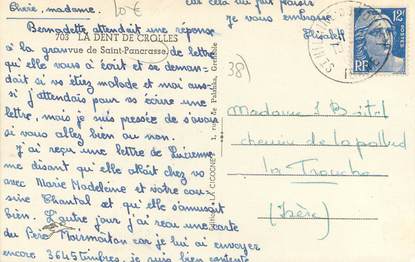 Chère, madame.
10€
cela cela fait plaisir
je vous embrasse
Elisabeth
Bernadette attendait une réponse
703 LA DENT DE CROLLES
à la gran vue de Saint-Pancrasse de lettre
qu'elle vous a écrit et se deman-
dait si vs étiez malade et moi aus-
si j'attendais pour vs écrire une
lettre, mais je suis pressée de savoir
si vous allez bien ou non.
J'ai reçu une lettre de
me disant qu'elle était chez vo
avec Marie Madeleine et votre cou-
sine Chantal et qu'elle s'amusait
bien. L'autre jour j'ai reçu une carte
du Père car je lui ai envoyer
encore 3645 timbres, je suis bien contente
38)
LA CIGOGNE
1, rue de Palanka, Grenoble
12F
POSTES
RF
ISÈRE
Madame J Boitel
chemin de la pallud
La Tronche
(Isère)